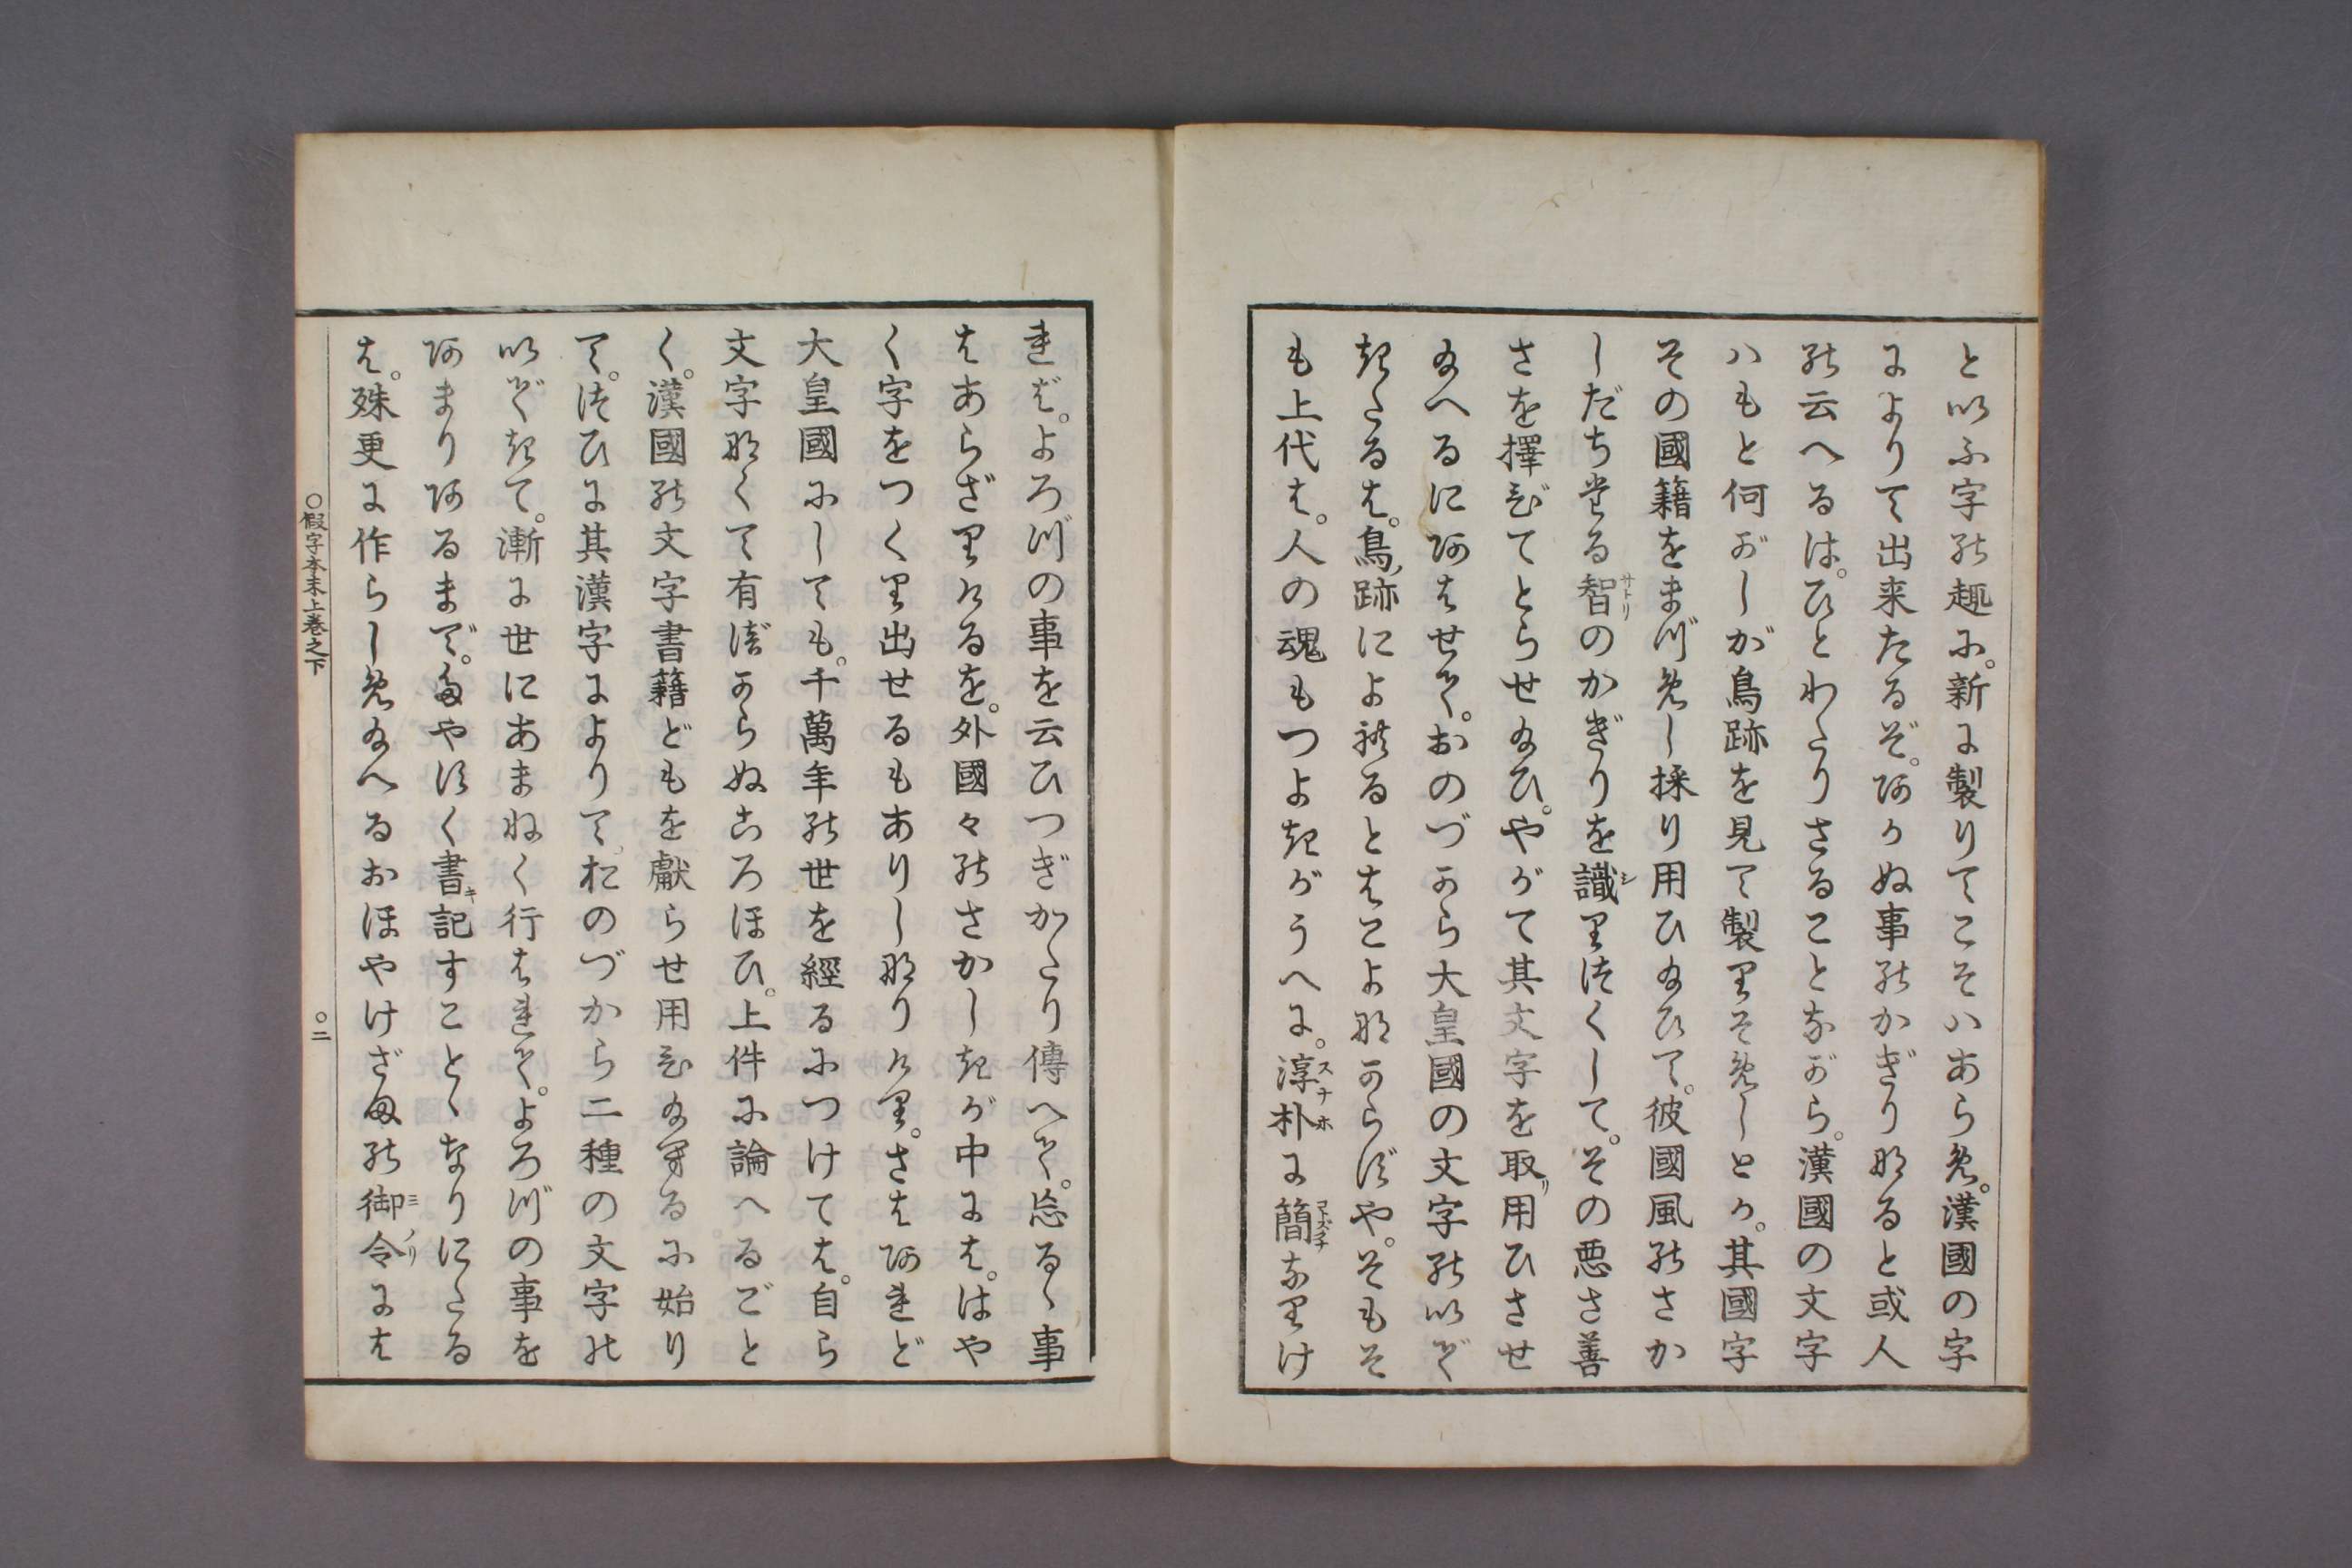 といふ字の趣に。新に製りてこそハあらめ。漢國の字
によりて出来たるぞ。あかぬ事のかぎりなると或人
の云へるは。ひとわたりさることながら。漢國の文字
ハもと何がしが鳥跡を見て製りそめしとか。其國字
その國籍をまづめし採り用ひ給ひて。彼國風のさか
しだちたる智のかぎりを識りつくして。その悪さ善
さを擇びてとらせ給ひ。やがて其文字を取用ひさせ
給へるにあはせて。おのづから大皇國の文字のいで
きたるは。鳥跡によれるとはこよなからずや。そもそ
も上代は。人の魂もつよきがうへに。淳朴に簡なりけ
れば。よろづの事を云ひつぎかたり傳へて。忘るゝ事
はあらざりけるを。外國々のさかしきが中には。はや
く字をつくり出せるもありしなりけり。さはあれど
大皇國にしても。千萬年の世を經るにつけては。自ら
文字なくて有べからぬころほひ。上件に論へるごと
く。漢國の文字書籍どもを獻らせ用ひ給へるに始り
て。つひに其漢字によりて。おのづから二種の文字の
いできて。漸に世にあまねく行はれて。よろづの事を
あまりあるまで。たやすく書記すことゝなりにたる
は。殊更に作らしめ給へるおほやけざまの御令には
○假字本末上巻之下
○二